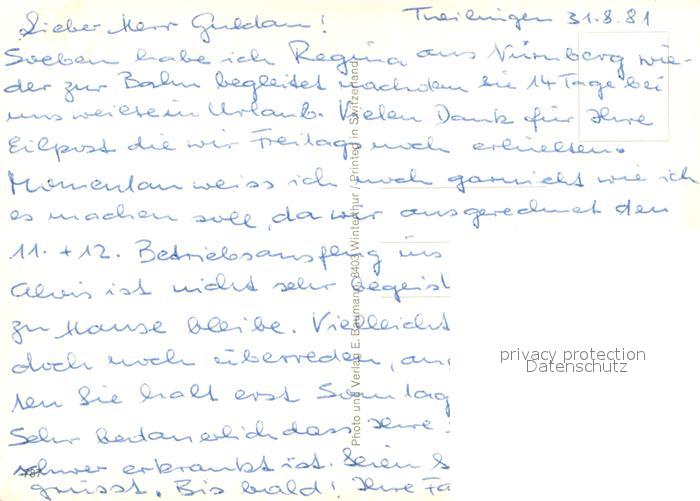 Lieber Herr Guldan! Theilingen 31.8.81
Soeben habe ich Regina aus Nürnberg wie-
der zur Bahn begleitet nachdem Sie 14 Tage bei
uns weilte in Urlaub. Vielen Dank für Ihre
Eilpost die wir Freitags noch erhielten.
Momentan weiss ich noch garnicht wie ich
es machen soll, da wir ausgerechnet den
11. + 12. Betriebsausflug ins
Alois ist nicht sehr begeist
zu Hause bleibe. Vielleicht
doch noch überreden, an
ten Sie halt erst Sonntag
Sehr bedauerlich dass Ihre
schwer erkrankt ist. Seien S
grüsst. Bis bald! Ihre Fa
Photo und Verlag E. Baumann, 8403 Winterthur / Printed in Switzerland
privacy protection
Datenschutz